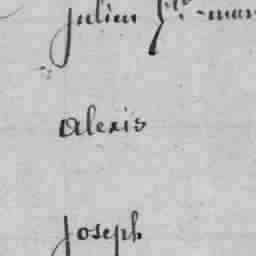 Julien Ste-mar
Alexis
Joseph